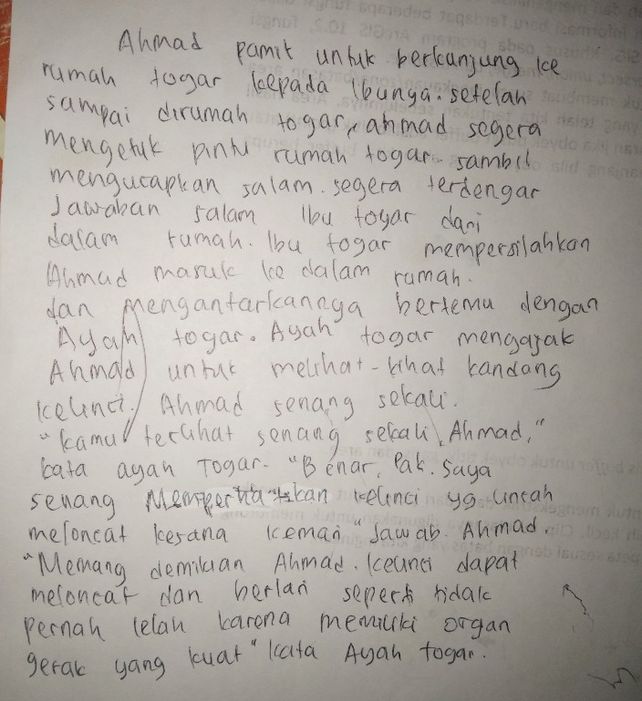 Ahmad pamit untuk berkunjung ke
rumah togar kepada Ibunya. setelah
sampai dirumah togar, ahmad segera
mengetuk pintu rumah togar. sambil
mengucapkan salam. segera terdengar
Jawaban salam Ibu togar dari
dalam rumah. Ibu togar mempersilahkan
Ahmad masuk ke dalam rumah.
dan Mengantarkannya bertemu dengan
Ayah togar. Ayah togar mengajak
Ahmad untuk melihat-lihat kandang
kelinci. Ahmad senang sekali.
"kamu terlihat senang sekali, Ahmad,"
kata ayah Togar. "Benar, Pak. Saya
senang Memperhatikan kelinci yg lincah
meloncat kesana kemari" Jawab Ahmad.
"Memang demikian Ahmad. kelinci dapat
meloncat dan berlari seperti tidak
pernah lelah karena memiliki organ
gerak yang kuat" kata Ayah togar.